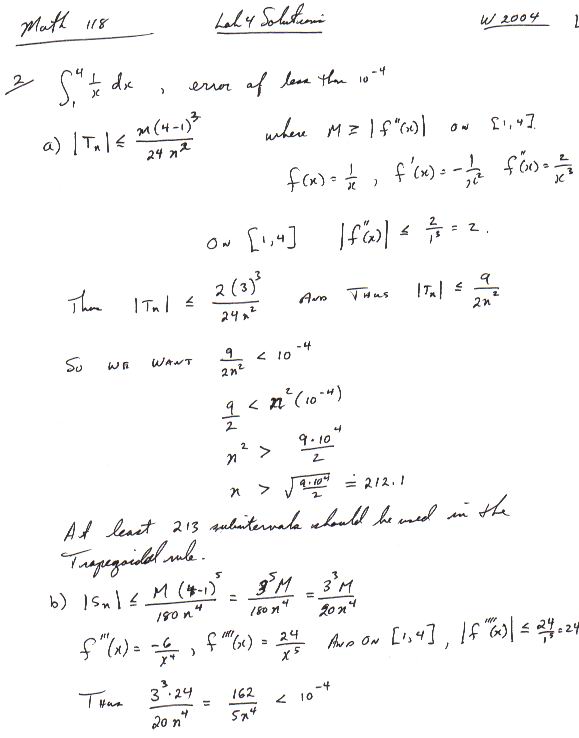 Math 118 Lab 4 Solutions W 2004 1
2 ∫₁⁴ 1/x dx , error of less than 10⁻⁴
a) |Tₙ| ≤ m(4-1)³/24n² where M ≥ |f''(x)| on [1,4].
f(x) = 1/x , f'(x) = -1/x² f''(x) = 2/x³
ON [1,4] |f''(x)| ≤ 2/1³ = 2.
Then |Tₙ| ≤ 2(3)³/24n² AND THUS |Tₙ| ≤ 9/2n²
SO WE WANT 9/2n² < 10⁻⁴
9/2 < n²(10⁻⁴)
n² > 9·10⁴/2
n > √(9·10⁴/2) ≐ 212.1
At least 213 subintervals should be used in the
Trapezoidal rule.
b) |Sₙ| ≤ M(4-1)⁵/180n⁴ = 3⁵M/180n⁴ = 3³M/20n⁴
f'''(x) = -6/x⁴ , f''''(x) = 24/x⁵ AND ON [1,4], |f''''(x)| ≤ 24/1⁵ = 24
Thus 3³·24/20n⁴ = 162/5n⁴ < 10⁻⁴